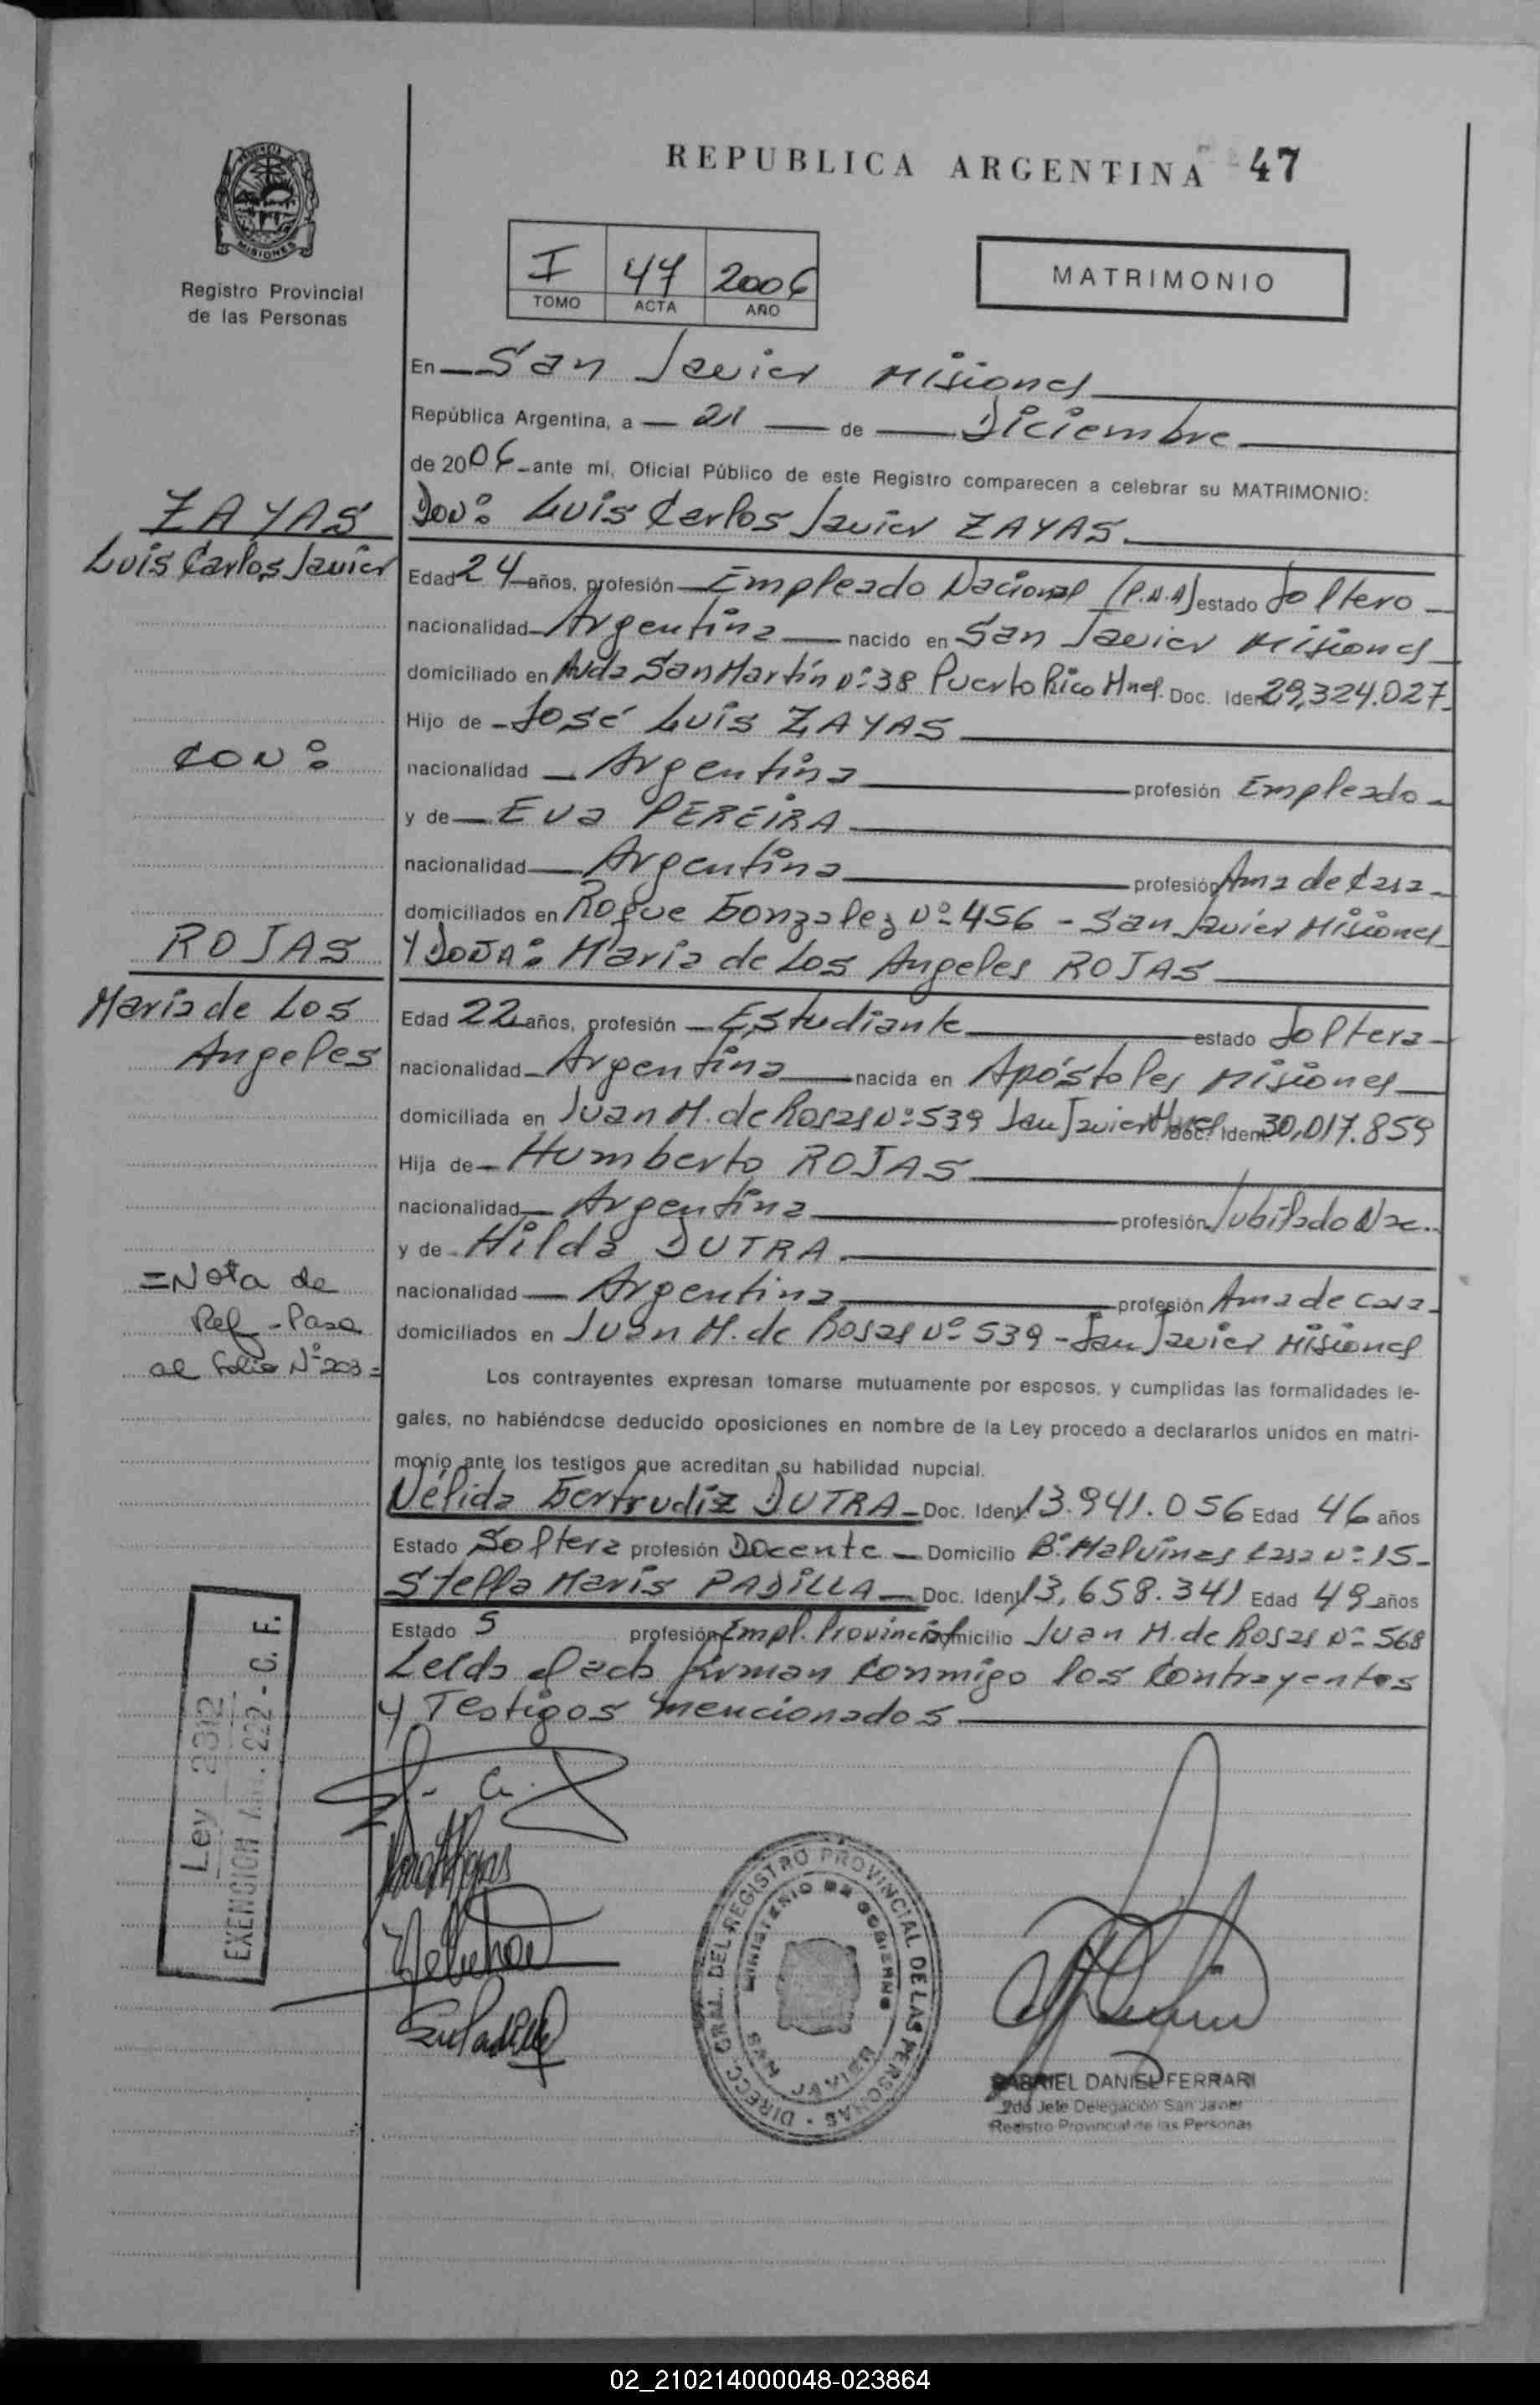 REPUBLICA ARGENTINA 47
PROVINCIA DE
MISIONES
Registro Provincial
de las Personas
I 47 2006
TOMO ACTA AÑO
MATRIMONIO
En San Javier Misiones
República Argentina, a 21 de Diciembre
de 2006 ante mí, Oficial Público de este Registro comparecen a celebrar su MATRIMONIO:
ZAYAS
Luis Carlos Javier
Don: Luis Carlos Javier ZAYAS
Edad 24 años, profesión Empleado Nacional (P.N.A) estado Soltero
nacionalidad Argentina nacido en San Javier Misiones
domiciliado en Avda San Martín Nº 38 Puerto Rico Mnes. Doc. Iden 29,324.027
Hijo de José Luis ZAYAS
CON:
nacionalidad Argentina profesión Empleado
y de Eva PEREIRA
nacionalidad Argentina profesión Ama de Casa
domiciliados en Roque Gonzalez Nº 456 - San Javier Misiones
ROJAS
María de Los
Angeles
Y DOÑA: María de Los Angeles ROJAS
Edad 22 años, profesión Estudiante estado Soltera
nacionalidad Argentina nacida en Apóstoles Misiones
domiciliada en Juan M. de Rosas Nº 539 San Javier Mnes Doc. Ident 30,017.859
Hija de Humberto ROJAS
nacionalidad Argentina profesión Jubilado Nac.
y de Hilda DUTRA
=Nota de
Ref - Pasa
al Folio Nº 203=
nacionalidad Argentina profesión Ama de casa
domiciliados en Juan M. de Rosas Nº 539 - San Javier Misiones
Los contrayentes expresan tomarse mutuamente por esposos, y cumplidas las formalidades le-
gales, no habiéndose deducido oposiciones en nombre de la Ley procedo a declararlos unidos en matri-
monio ante los testigos que acreditan su habilidad nupcial.
Nélida Gertrudiz DUTRA Doc. Ident 13.941.056 Edad 46 años
Estado Soltera profesión Docente Domicilio Bº Malvinas Casa Nº 15
Stella Maris PADILLA Doc. Ident 13,658.341 Edad 49 años
Estado S profesión Empl. Provincial domicilio Juan M. de Rosas Nº 568
Leída el acta firman conmigo los Contrayentes
y Testigos mencionados
Ley 2302
EXENCION Art. 222 - C. F.
DIRECC. GRAL. DEL REGISTRO PROVINCIAL DE LAS PERSONAS
MINISTERIO DE GOBIERNO
SAN JAVIER
GABRIEL DANIEL FERRARI
2do Jefe Delegación San Javier
Registro Provincial de las Personas
02_210214000048-023864